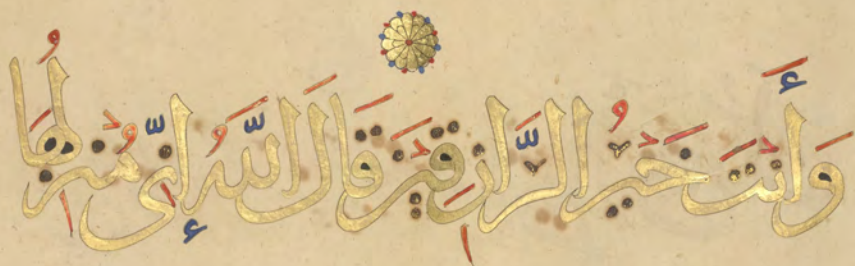 وَأَنتَ خَيْرُ الرَّازِقِينَ قَالَ اللَّهُ إِنِّي مُنَزِّلُهَا